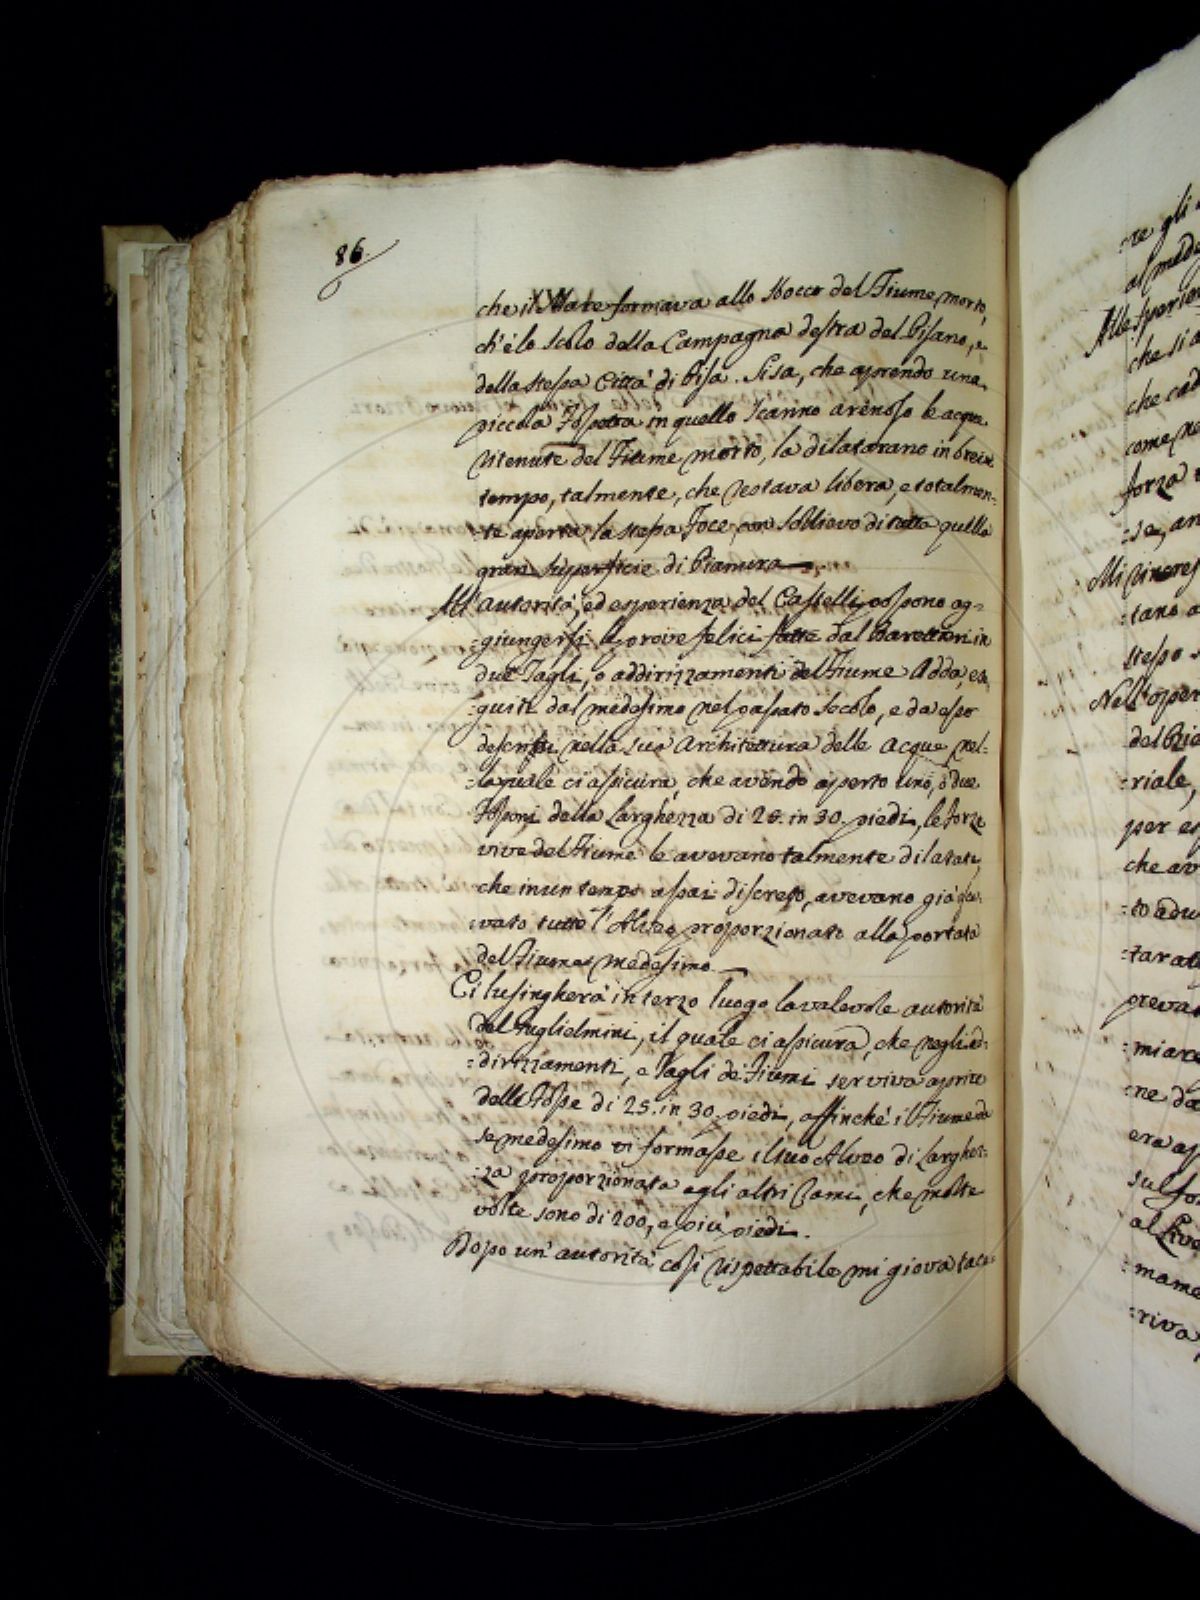 86.
che il Mare formava allo sbocco del Fiume morto,
ch'è lo scolo della Campagna destra del Pisano, e
della stessa Città di Pisa. Si sa, che aprendo una
piccola Fossetta in quello scanno arenoso le acque
ritenute del Fiume morto, la dilatavano in breve
tempo, talmente, che restava libera, e totalmen-
:te aperta la stessa Foce con sollievo di tutta quella
gran superficie di Pianura.
All'autorità, ed esperienza del Castelli possono ag=
:giungersi le prove felici fatte dal Barattieri in
due Tagli, o addirizzamenti del Fiume Adda, ese
:guiti dal medesimo nel passato secolo, e da esso
descritti nella sua Architettura delle Acque nel:
:la quale ci assicura, che avendo aperto uno, o due
Fossoni della larghezza di 25. in 30. piedi, le forze
vive del Fiume le avevano talmente dilatati,
che in un tempo assai discreto, avevano già ca:
vato tutto l'Alveo proporzionato alla portata
del Fiume medesimo.
Ci lusingherà in terzo luogo la valevole autorità
del Guglielmini, il quale ci assicura, che negli ad:
:dirizzamenti, e Tagli de' Fiumi serviva aprire
delle Fosse di 25. in 30. piedi, affinchè il Fiume da
se medesimo vi formasse il suo Alveo di larghez:
:za proporzionata agli altri rami, che molte
volte sono di 200, e più piedi.
Dopo un'autorità così rispettabile mi giova tace=
:re gli
al mede
Alle sperien
che si a
che cad
come ne
forza
:se, an
Mi rincres
:tano a
stesso
Nell'oper
del
:riale,
per es
che av
:to adu
:tarat
preva
:miare
:ne da
era ap
sul fo
al Live
:mame
:riva,